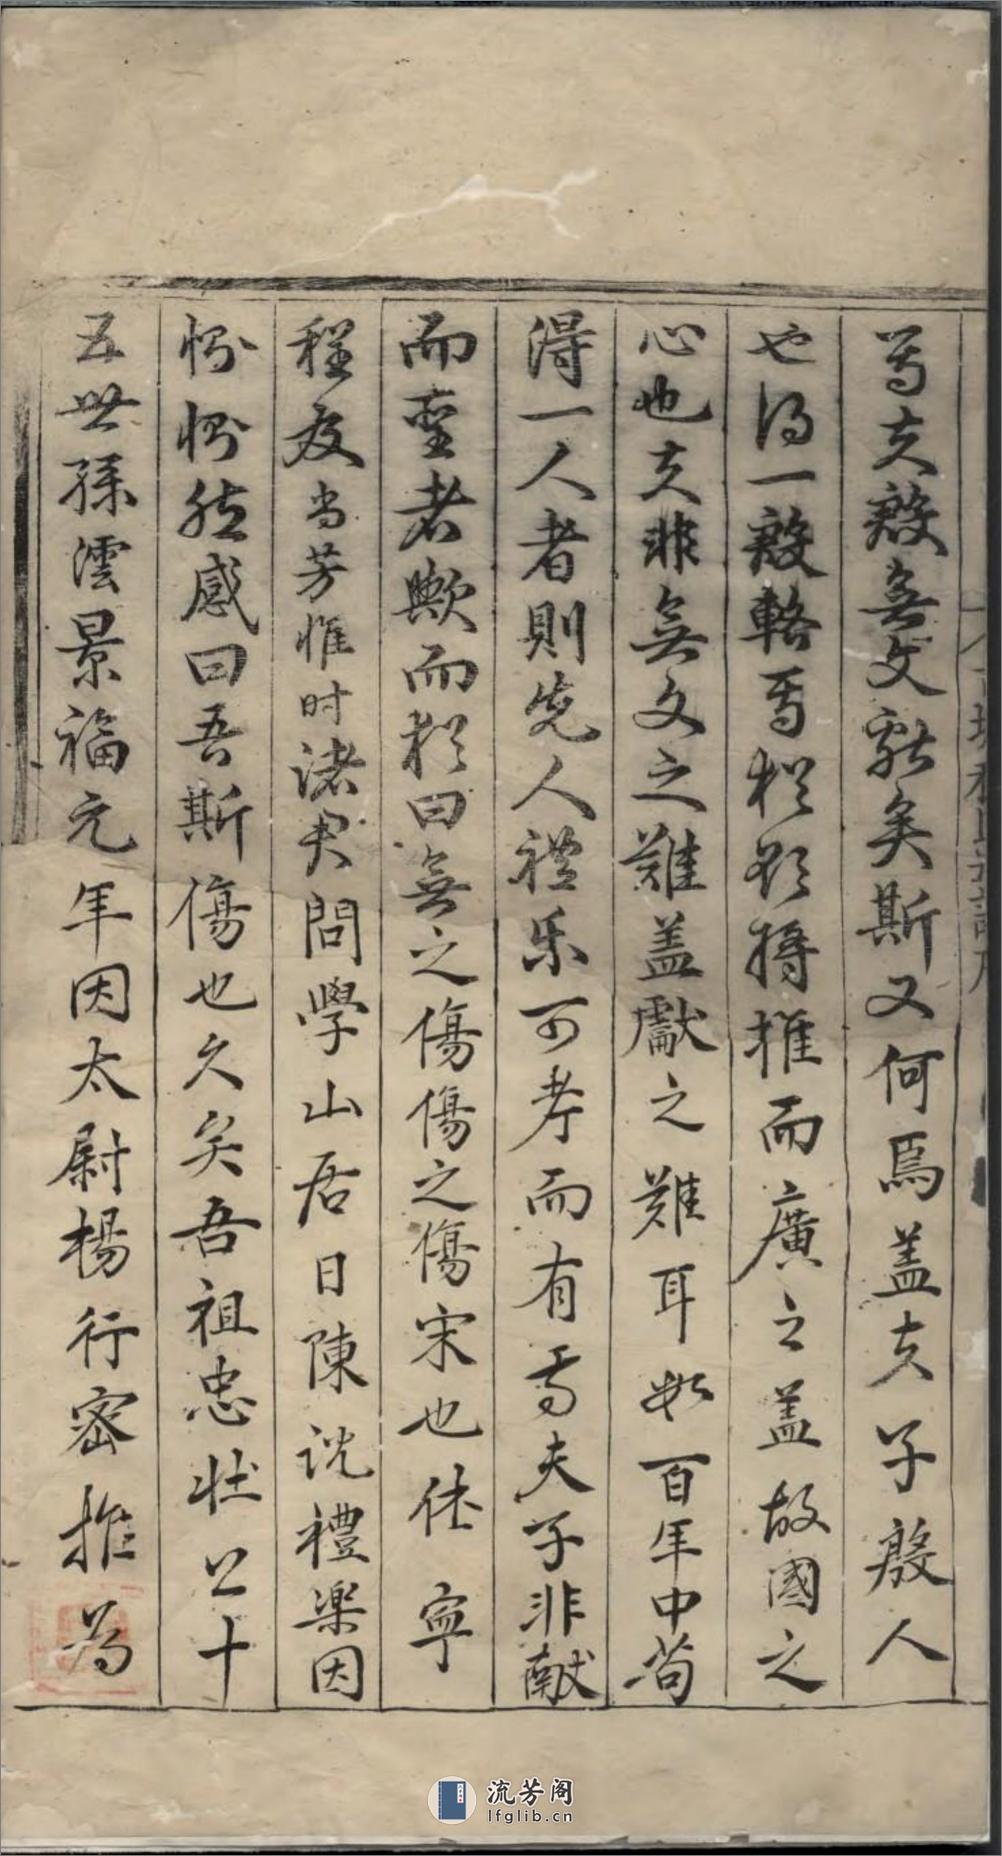 焉夫殷無文獻矣斯又何焉蓋夫子殷人
也得一殷輅焉猶欲將推而廣之蓋故國之
心也夫非無文之難蓋獻之難耳如百年中苟
得一人者則先人禮乐可考而有焉夫子非献
而聖者歟而猶曰無之傷傷之傷宋也仕寧
程友尚芳惟时诸君問學山居日陳說禮樂因
惻惻然感曰吾斯傷也久矣吾祖忠壮公十
五世孫澐景福元年因太尉楊行密推为
流芳阁
lfglib.cn